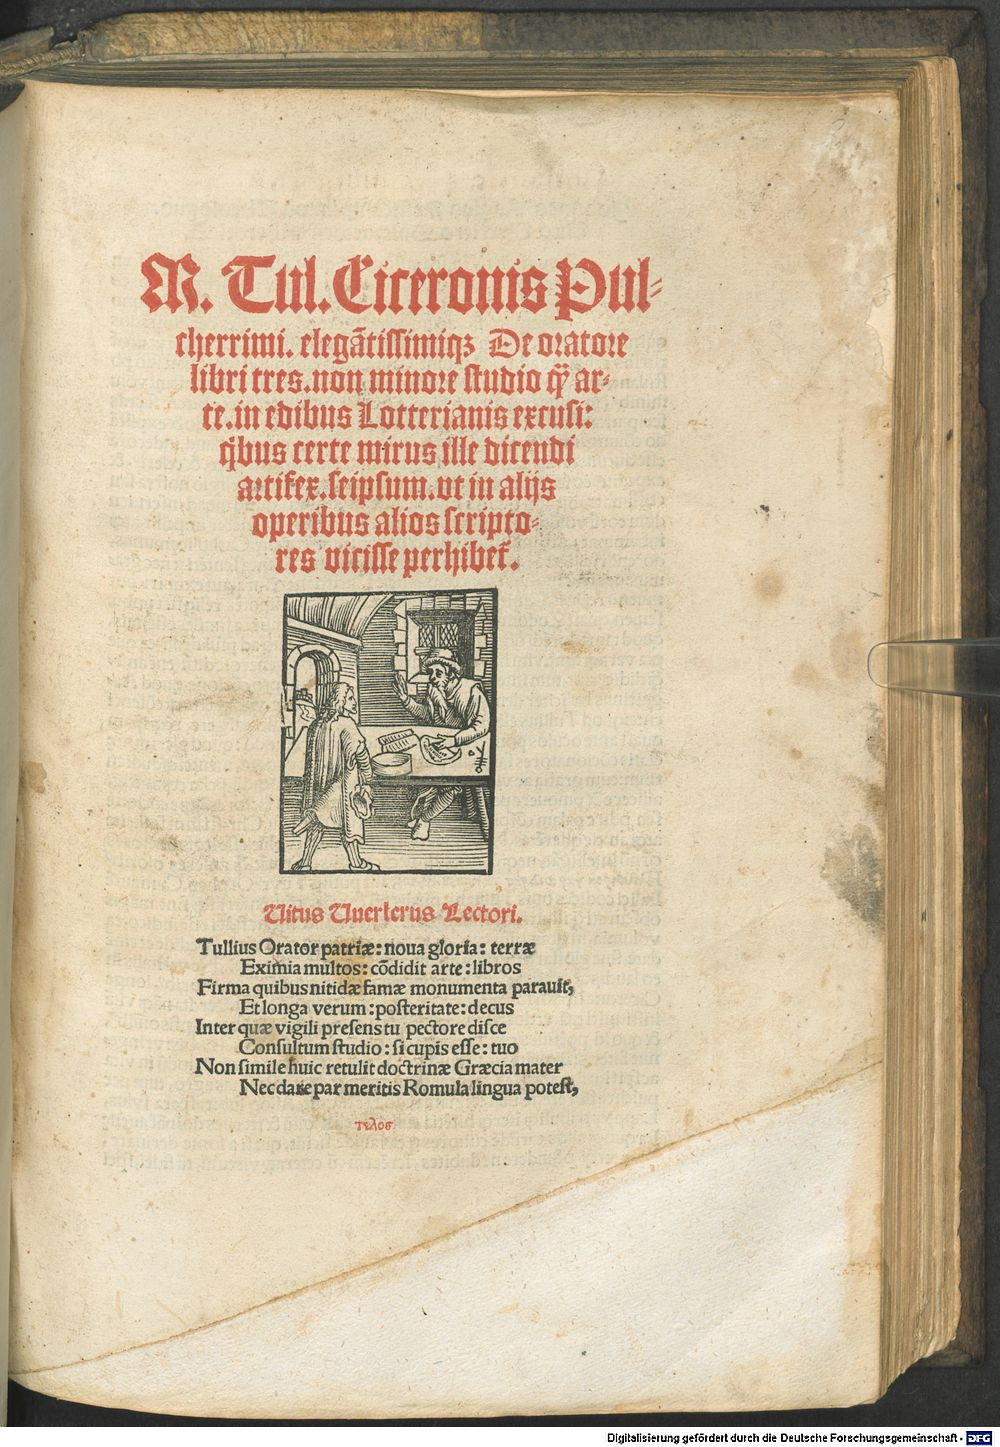 M. Tul. Ciceronis Pul-
cherrimi. elegãtissimiqꝫ De oratore
libri tres. non minore studio q̃ȝ ar-
te. in edibus Lotterianis excusi:
qͥbus certe mirus ille dicendi
artifex. seipsum. vt in alijs
operibus alios scripto-
res vicisse perhibet̃.
Vitus Vuerlerus Lectori.
Tullius Orator patriæ: noua gloria: terræ
Eximia multos: cõdidit arte: libros
Firma quibus nitidæ famæ monumenta parauit,
Et longa verum: posteritate: decus
Inter quæ vigili presens tu pectore disce
Consultum studio: si cupis esse: tuo
Non simile huic retulit doctrinæ Græcia mater
Nec dare par meritis Romula lingua potest,
τελοσ
Digitalisierung gefördert durch die Deutsche Forschungsgemeinschaft - DFG